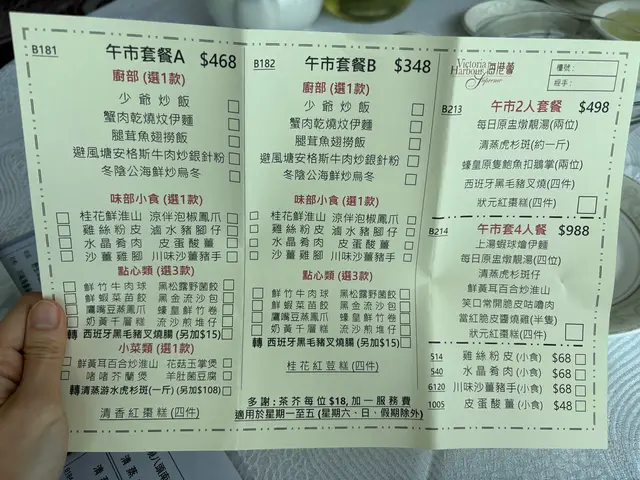 B181 午市套餐A $468
廚部 (選1款)
少爺炒飯
蟹肉乾燒炆伊麵
腿茸魚翅撈飯
避風塘安格斯牛肉炒銀針粉
冬陰公海鮮炒烏冬
味部小食 (選1款)
桂花鮮淮山 涼伴泡椒鳳爪
雞絲粉皮 滷水豬腳仔
水晶肴肉 皮蛋酸薑
沙薑雞腳 川味沙薑豬手
點心類 (選3款)
鮮竹牛肉球 黑松露野菌餃
鮮蝦菜苗餃 黑金流沙包
鷹嘴豆蒸鳳爪 蠔皇鮮竹卷
奶黃千層糕 流沙煎堆仔
轉 西班牙黑毛豬叉燒腸 (另加$15)
小菜類 (選1款)
鮮黃耳百合炒淮山 花菇玉掌煲
啫啫芥蘭煲 羊肚菌豆腐
轉清蒸游水虎杉斑(一斤) (另加$108)
清香紅棗糕 (四件)
B182 午市套餐B $348
廚部 (選1款)
少爺炒飯
蟹肉乾燒炆伊麵
腿茸魚翅撈飯
避風塘安格斯牛肉炒銀針粉
冬陰公海鮮炒烏冬
味部小食 (選1款)
桂花鮮淮山 涼伴泡椒鳳爪
雞絲粉皮 滷水豬腳仔
水晶肴肉 皮蛋酸薑
沙薑雞腳 川味沙薑豬手
點心類 (選3款)
鮮竹牛肉球 黑松露野菌餃
鮮蝦菜苗餃 黑金流沙包
鷹嘴豆蒸鳳爪 蠔皇鮮竹卷
奶黃千層糕 流沙煎堆仔
轉 西班牙黑毛豬叉燒腸 (另加$15)
桂花紅荳糕 (四件)
多謝:茶芥每位 $18, 加一服務費
適用於星期一至五 (星期六、日、假期除外)
Victoria Harbour Supreme 海港薈
檯號:
經手:
B213 午市2人套餐 $498
每日原盅燉靚湯(兩位)
清蒸虎杉斑(約一斤)
蠔皇原隻鮑魚扣鵝掌(兩位)
西班牙黑毛豬叉燒(四件)
狀元紅棗糕(四件)
B214 午市套4人餐 $988
上湯蝦球燴伊麵
每日原盅燉靚湯(四位)
清蒸虎杉斑仔
鮮黃耳百合炒淮山
笑口常開脆皮咕嚕肉
當紅脆皮鹽燒雞(半隻)
狀元紅棗糕(四件)
514 雞絲粉皮 (小食) $68
540 水晶肴肉 (小食) $68
6120 川味沙薑豬手(小食) $68
1005 皮蛋酸薑 (小食) $48